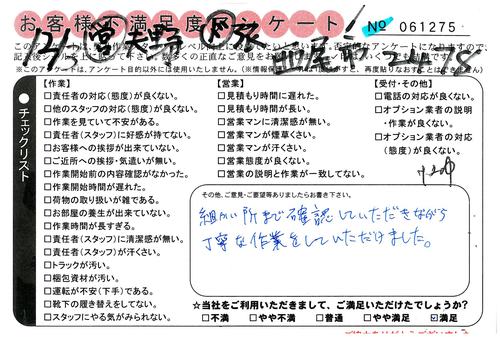 お客様不満足度アンケート
No 061275
※このアンケートは、アンケート目的以外には使用いたしません。
チェックリスト
【作業】
□責任者の対応(態度)が良くない。
□他のスタッフの対応(態度)が良くない。
□作業を見ていて不安がある。
□責任者(スタッフ)に好感が持てない。
□お客様への挨拶が出来ていない。
□ご近所への挨拶・気遣いが無い。
□作業開始前の内容確認がなかった。
□作業開始時間が遅れた。
□荷物の取り扱いが雑である。
□お部屋の養生が出来ていない。
□作業時間が長すぎる。
□責任者(スタッフ)に清潔感が無い。
□責任者(スタッフ)が汗くさい。
□トラックが汚い。
□梱包資材が汚い。
□運転が不安(下手)である。
□靴下の履き替えをしてない。
□スタッフにやる気がみられない。
【営業】
□見積もり時間に遅れた。
□見積もり時間が長い。
□営業マンに清潔感が無い。
□営業マンが煙草くさい。
□営業マンが汗くさい。
□営業態度が良くない。
□営業の説明と作業が一致してない。
【受付・その他】
□電話の対応が良くない。
□オプション業者の説明
・作業が良くない。
□オプション業者の対応
(態度)が良くない。
その他、ご意見・ご要望等ありましたらお書き下さい。
細かい所まで確認していただきながら
丁寧な作業をしていただけました。
☆当社をご利用いただきまして、ご満足いただけたでしょうか?
□不満 □やや不満 □普通 □やや満足 ☑満足